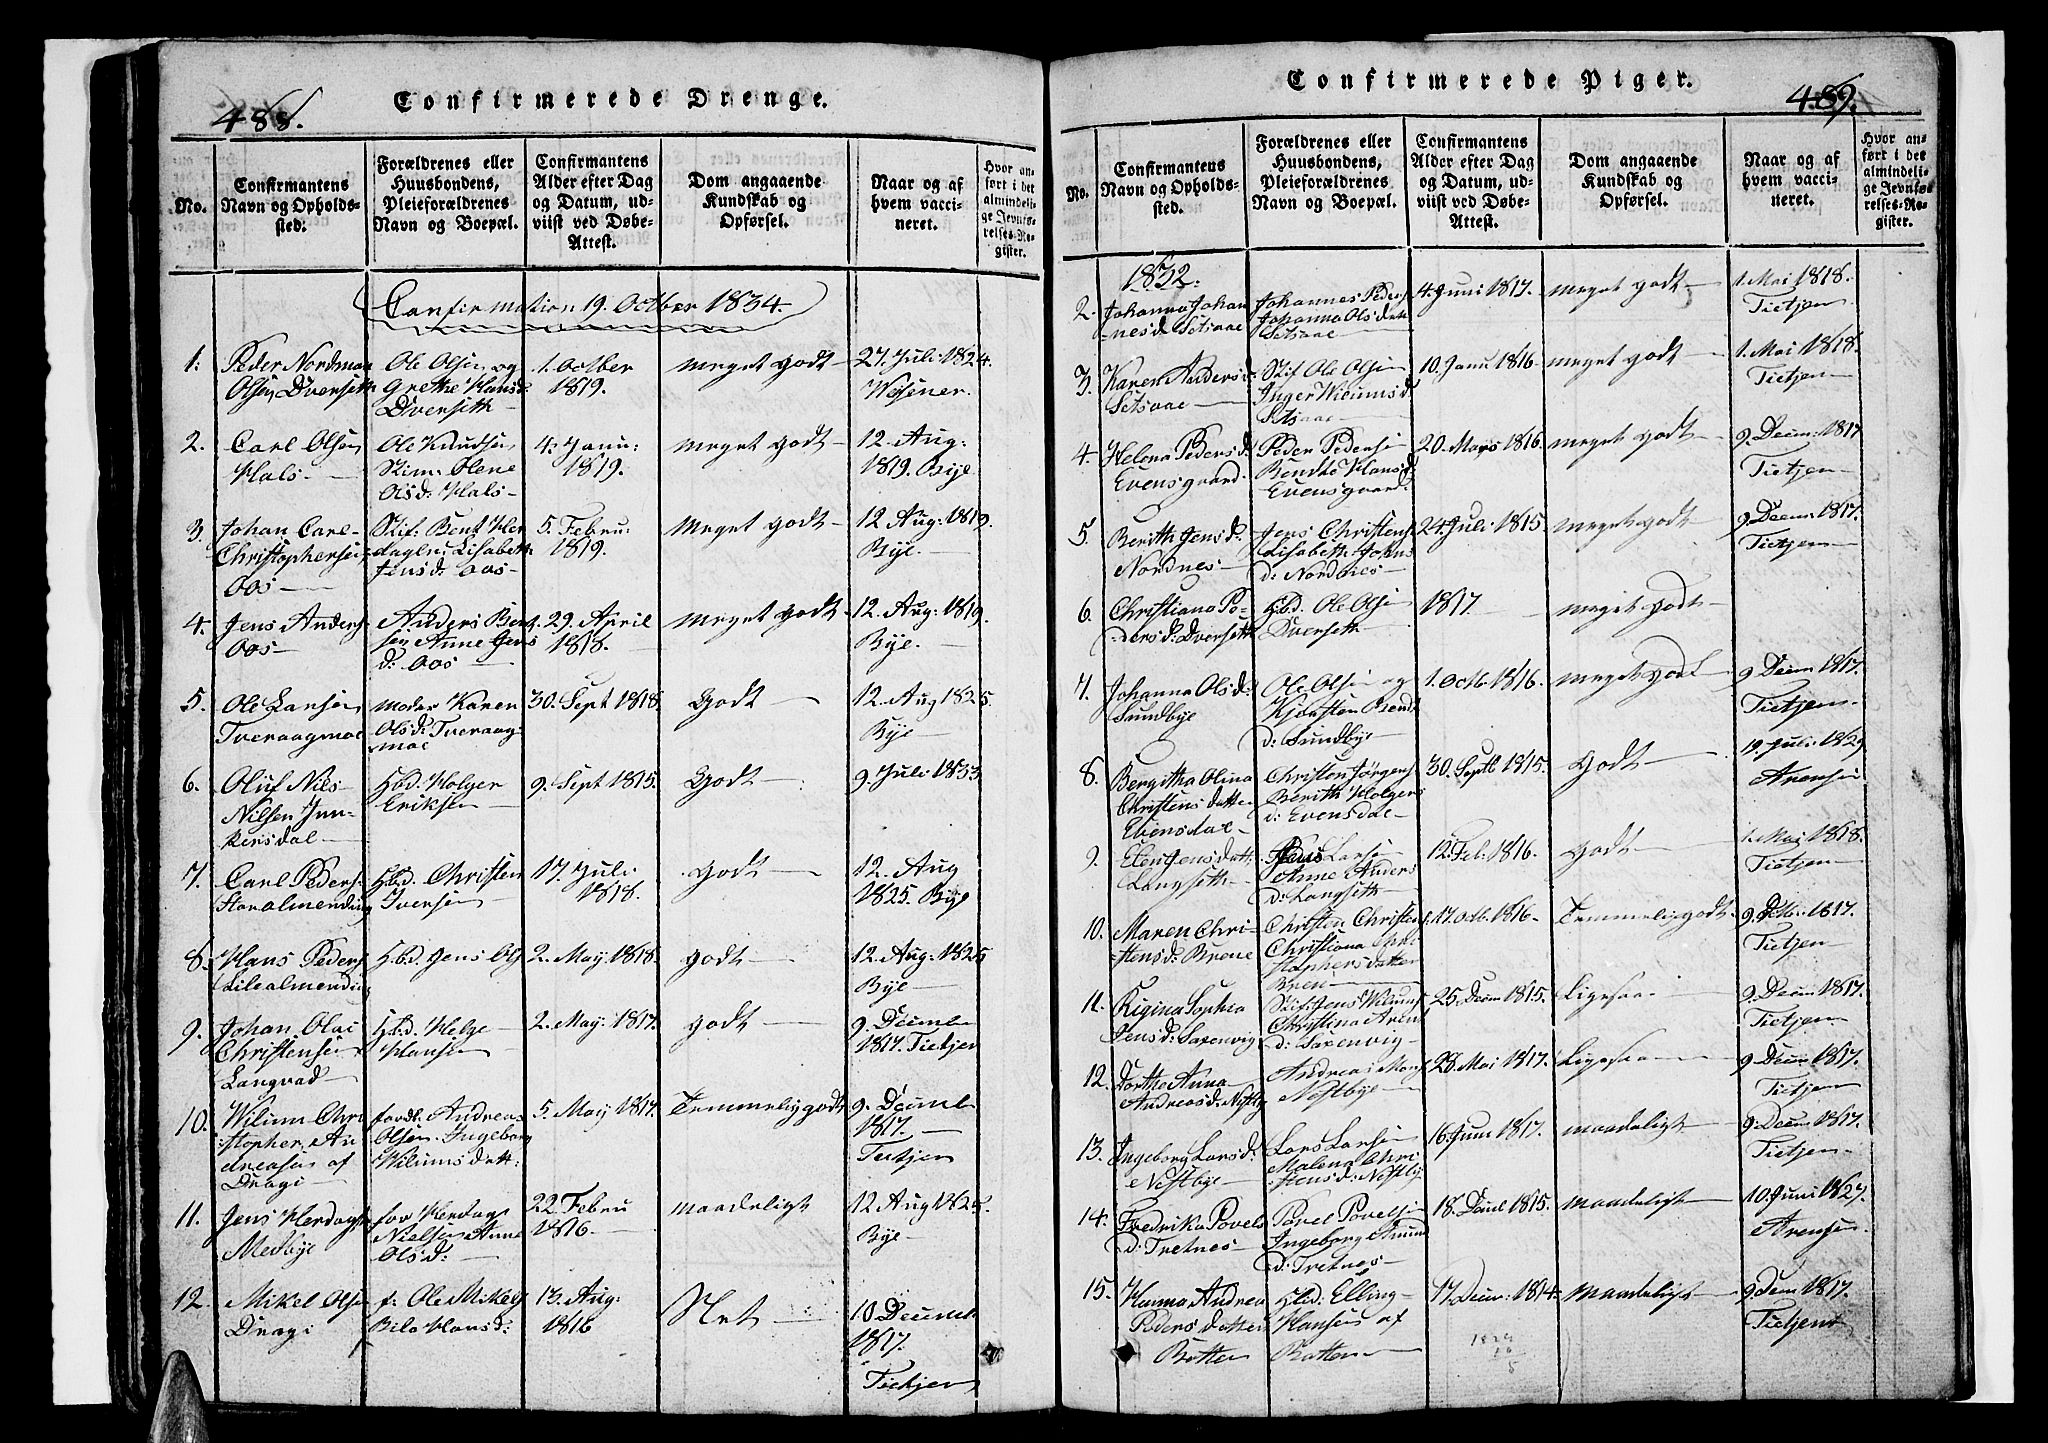 488.
Confirmerede Drenge.
No.
Confirmantens Navn og Opholds-sted.
Forældrenes eller Huusbondens, Pleieforældrenes Navn og Boepæl.
Confirmantens Alder efter Dag og Datum, ud-viist ved Døbe-Attest.
Dom angaaende Kundskab og Opførsel.
Naar og af hvem vacci-neret.
Hvor an-ført i det almindeli-ge Jevnfø-relses-Re-gister.
Confirmation 19. October 1834.
1. Peder Nordman Olsen Dverseth
Ole Olsen og Grethe Hansd Dverseth
1. Octber 1819.
meget godt
27. Juli 1824.
2. Carl Olsen Hals
Ole Knudsen Olene Olsd: Hals
4. Janu: 1819.
meget godt
12 Aug: 1819. Bye
3. Johan Carl Christophersen Oos
Stif: Bent Her dagsen Lisabeth Jensd: Oos
5. Febru: 1819.
Meget godt
12 Aug: 1819. Bye.
4. Jens Anders Oos
Anders Bent sen Anne Jens d: Oos
29. April 1818.
meget godt
12 Aug: 1819. Bye.
5. Ole Larsen Tveraagmoe
moder Karen Olsd: Tveraag moe
30. Sept 1818.
Godt
12. Aug 1825 Bye
6. Oluf Nils Nilsen Jun-kersdal
Hbd. Holger Eriksen
9. Sept 1815.
Godt
9 Juli 1833
7. Carl Peders Storalmending
Hbd. Christen Iversen
17. Juli 1818.
Godt
12. Aug 1825 Bye
8. Hans Peders Lilealmending
Hbd. Jens Ols
2. May 1818.
godt
12 Aug: 1825 Bye
9. Johan Olai Christensen Langvad
Hbd. Helge Hansen
2. May 1817.
godt
9. Decemb 1817. Tietjen
10. Wilum Chri stopher An dreasen af Dragi
foræl: Andreas Olsen Ingeborg Wilumsdatt:
5. May 1817.
Temmelig godt
9. Decemb 1817. Tietjen
11. Jens Herdags Medbye
for Herdag Nielsen Anne Olsd:
22. Febru 1816.
maadeligt
12 Aug 1825. Bye
12. Mikel Olsen Dragi
f: Ole Mikels Hansd:
13. Aug: 1816
Slet
10 Decemb 1817. Tietjen
Confirmerede Piger.
489.
No.
Confirmantens Navn og Opholds-sted.
Forældrenes eller Huusbondens, Pleieforældrenes Navn og Boepæl.
Confirmantens Alder efter Dag og Datum, ud-viist ved Døbe-Attest.
Dom angaaende Kundskab og Opførsel.
Naar og af hvem vacci-neret.
Hvor an-ført i det almindeli-ge Jevnfø-relses-Re-gister.
1832.
2. Johanna Johan nesd Setsaae
Johannes Peders Johanna Olsdatt Setsaae
4. Juni 1817.
meget godt
1. Mai 1818. Tietjen
3. Karen Andersd: Setsaae
Stif Ole Olsen Inger Wilumsd Setsaae
10. Janu 1816.
meget godt
1. Mai 1818. Tietjen
4. Helena Pedersd: Evensgaard
Peder Pedersen Hansd Evensgaard
20. Mars 1816.
meget godt
9. Decem: 1817 Tietjen
5. Berith Jensd. Nordnes
Jens Christens Lisabeth Johns d: Nordnes
24 Juli 1815
meget godt
9 Decem: 1817. Tietjen
6. Christiana Pe-dersd: Dverseth
Hbd. Ole Olsen Dverseth
1817.
meget godt
7. Johanna Olsd: Sundbye
Ole Olsen og Kjersten Bend d: Sundbye
1. Octb 1816.
meget godt
9. Decem 1817. Tietjen
8. Bergitha Olina Christensdatter Evensdal
Christen Jörgens Berith Holgers d: Evensdal
30. Septb 1815.
Godt
19. Juli 1829 Arensen
9. Elen Jensdatt: Langseth
Jens Larsen Anne Anders d: Langseth
12. Feb: 1816.
godt
1. Mai 1818. Tietjen
10. Maren Chri-stensd: Brene
Christen Christens Christiana Chri stophersdatter
17. Octb. 1816.
Temmelig godt
9. 1817. Tietjen
11. Rigina Sophia Jensd: Saxenvig
Stif: Jens Wilums Christina Arent d: Saxenvig
25. Decem 1815.
Ligesaa
9. Decem 1817. Tietjen
12. Dorthe Anna Andreasd: Nestby
Andreas Nestbye
28. Mai 1817.
Ligesaa
9 Decem 1817. Tietjen
13. Ingeborg Larsd: Nestbye
Lars Larsen Malena Chri stensd: Nestby
16. Juni 1817.
maadeligt
9. Decem 1817. Tietjen
14. Fredrika Povels d: Tretnes
Povel Povelsen Ingeborg d: Tretnes
18. Decb 1815.
maadeligt
10. Juni 1827. Arensen
15. Hanna Andrea Pedersdatter Botten
Hbd: Elling Hansen af Botten
17 Decem: 1814.
maadeligt
9 Decem 1817. Tietjens